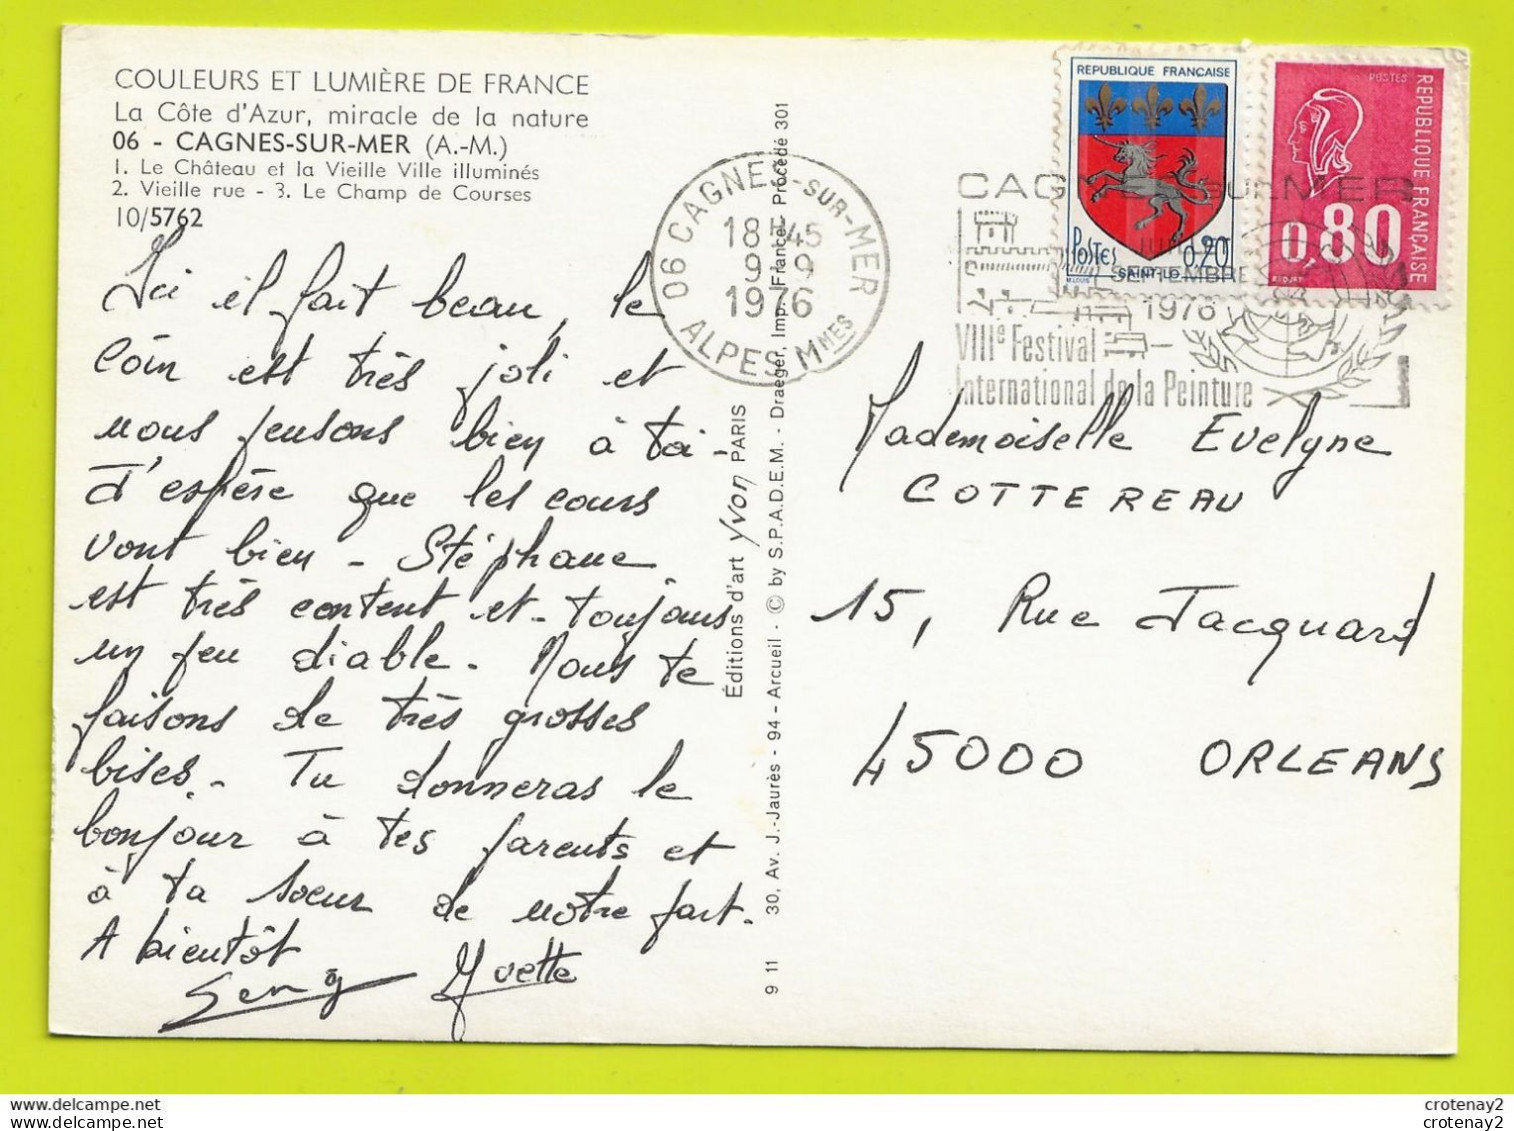 COULEURS ET LUMIÈRE DE FRANCE
La Côte d'Azur, miracle de la nature
06 - CAGNES-SUR-MER (A.-M.)
1. Le Château et la Vieille Ville illuminés
2. Vieille rue - 3. Le Champ de Courses
10/5762
Ici il fait beau, le
coin est très joli et
nous pensons bien à toi -
J'espère que les cours
vont bien - Stéphane
est très content et toujours
un peu diable. Nous te
faisons de très grosses
bises. - Tu donneras le
bonjour à tes parents et
à ta soeur de notre part.
A bientôt
Yvette
9 11 30, Av. J.-Jaurès - 94 - Arcueil - © by S.P.A.D.E.M. - Draeger, Imp. France. Procédé 301
Éditions d'art Yvon PARIS
06 CAGNES-SUR-MER
18H45
9-9
1976
ALPES MMES
REPUBLIQUE FRANÇAISE
Postes 0,20
SAINT-LO
POSTES
REPUBLIQUE FRANÇAISE
0,80
CAGNES-SUR-MER
JUILLET
SEPTEMBRE
1976
VIIIe Festival
International de la Peinture
Mademoiselle Evelyne
COTTEREAU
15, Rue Jacquard
45000 ORLEANS
crotenay2
crotenay2